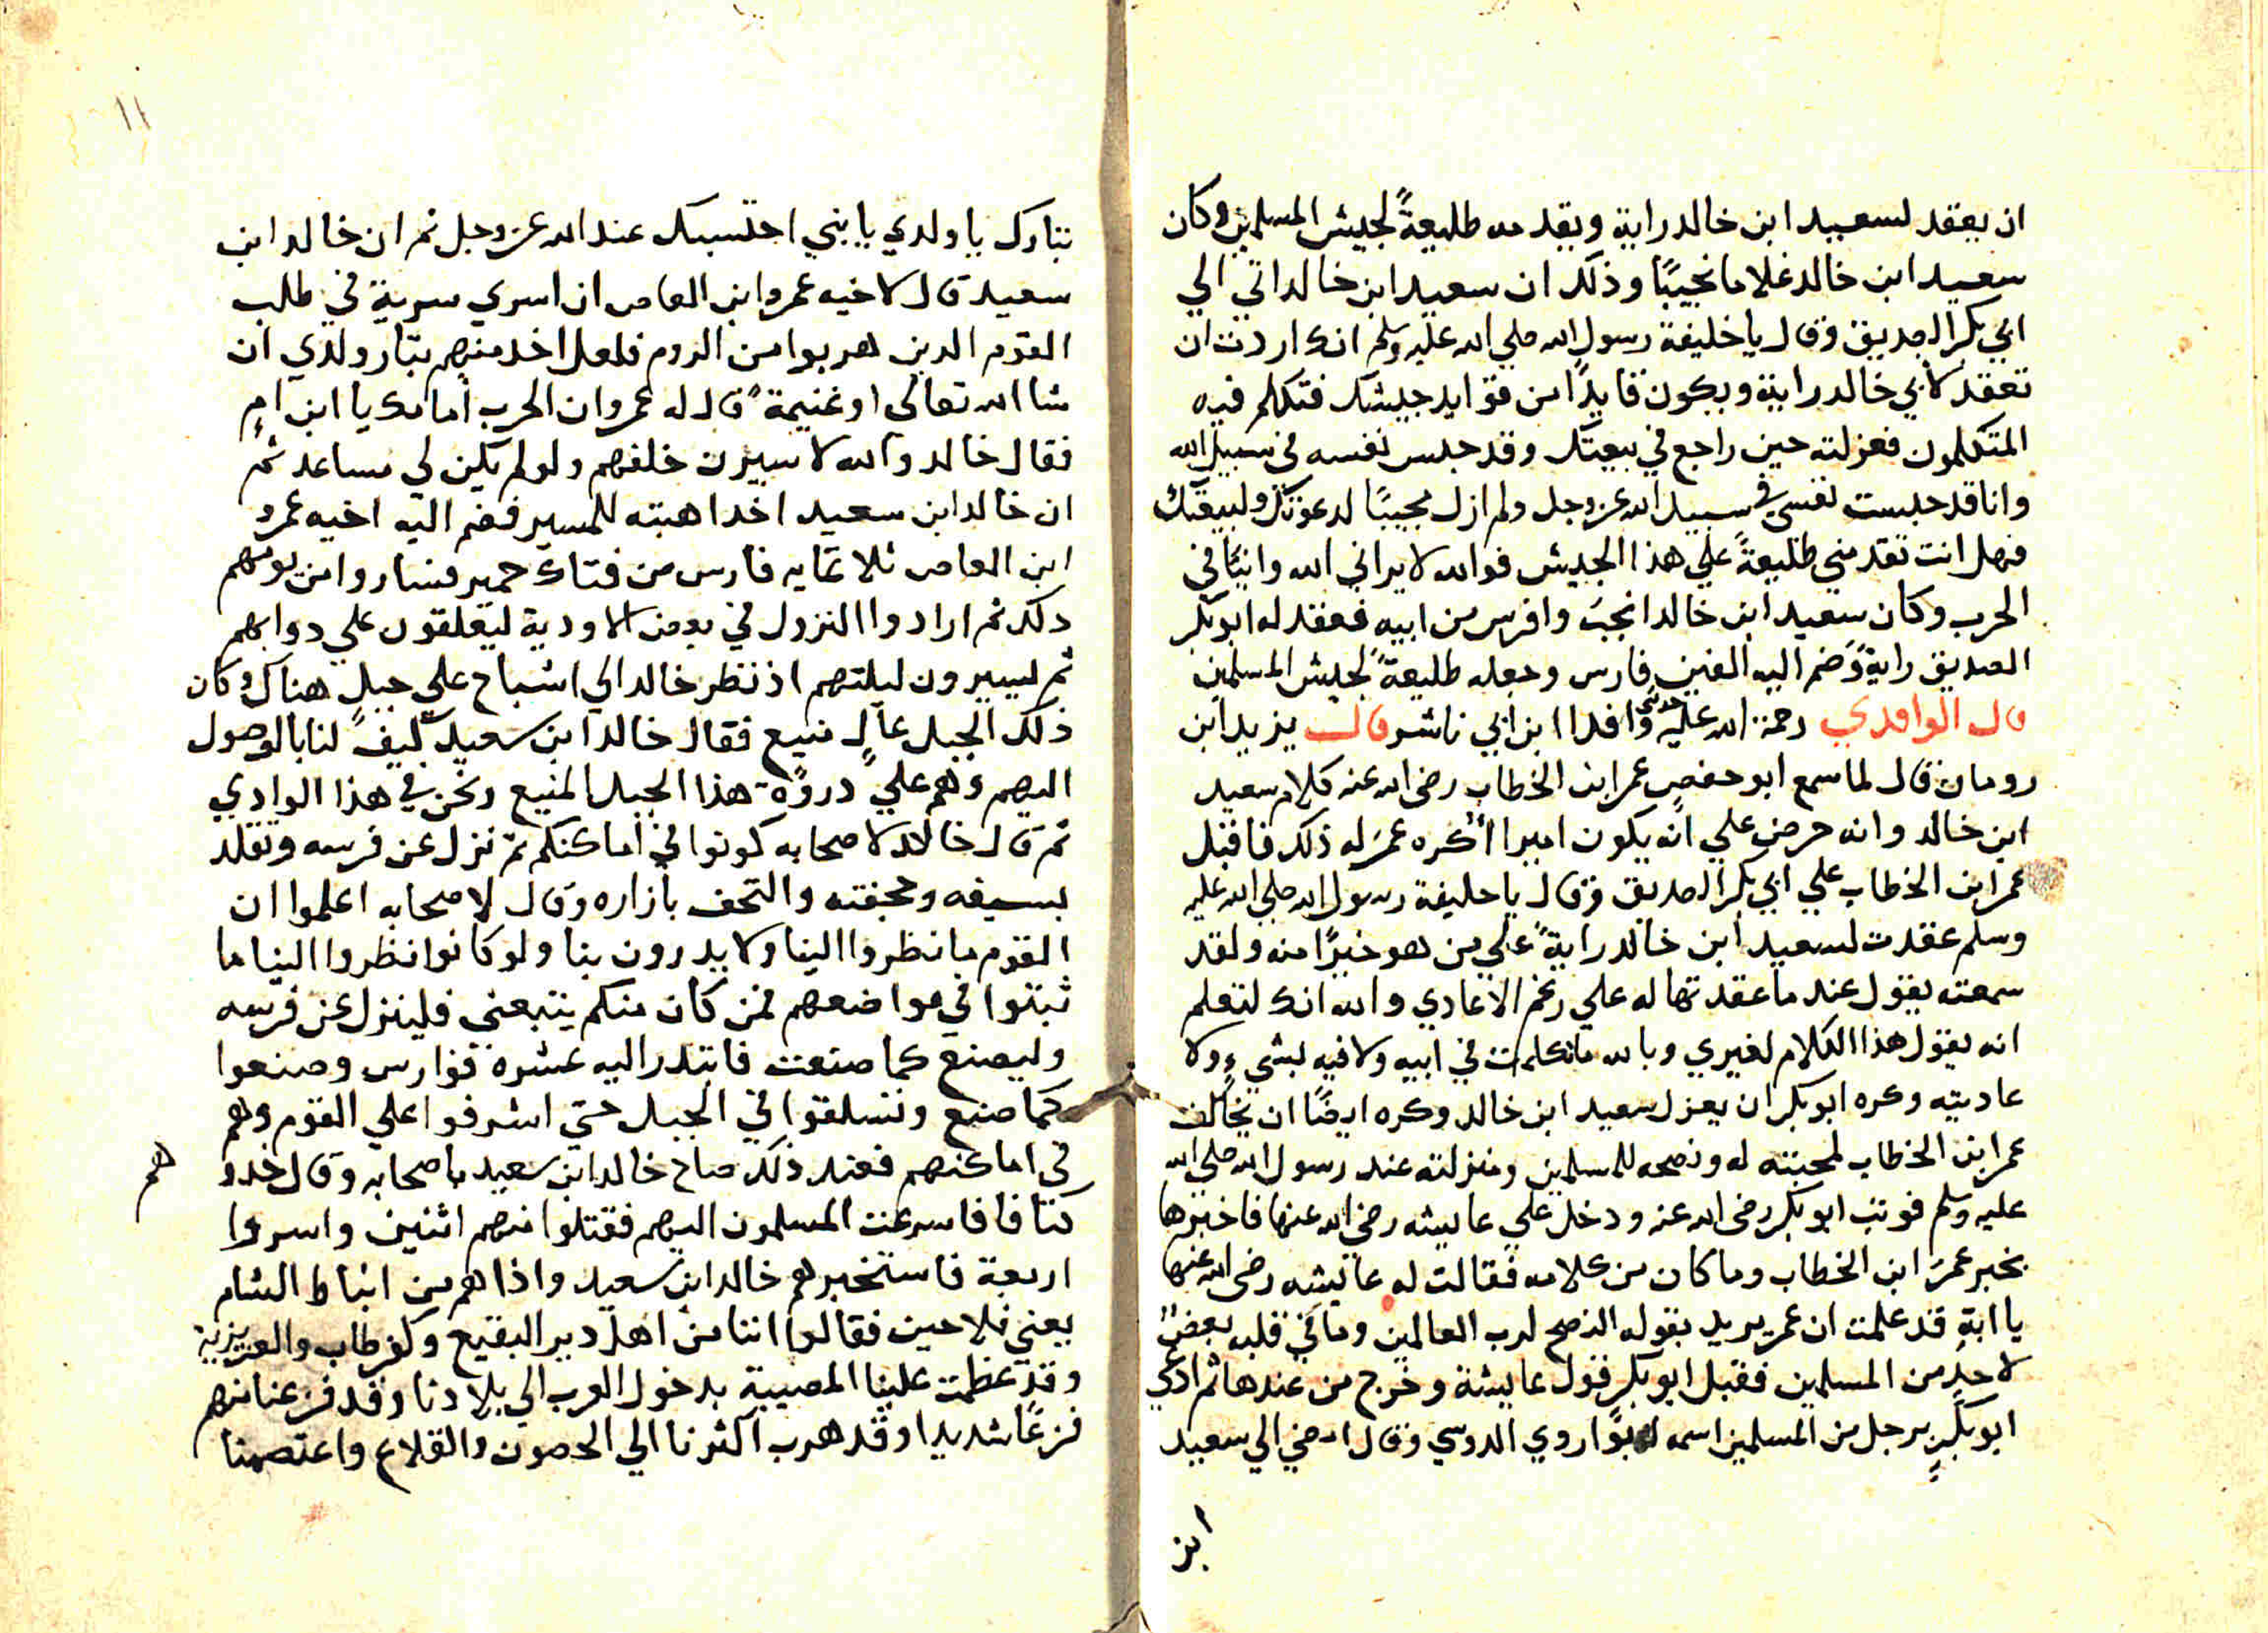 ان يعقد لسعيد ابن خالد راية ويقدمه طليعةً لجيش المسلمين وكان
سعيد ابن خالد غلاما نجيبًا وذلك ان سعيد ابن خالد اتي الي
ابي بكر الصديق وقال يا خليفة رسول الله صلي الله عليه وسلم انك اردت ان
تعقد لأبي خالد راية ويكون قايدًا من قوايد جيشك فتكلم فيه
المتكلمون فعزلته حين راجع في بيعتك وقد حبس نفسه في سبيل الله
وانا قد حبست نفسي في سبيل الله عز وجل ولم ازل مجيبًا لدعوتك ولبيعتك
فهل انت تقدمني طليعةً علي هذا الجيش فوالله لا يراني الله وانيًا في
الحرب وكان سعيد ابن خالد انجب وافرس من ابيه فعقد له ابو بكر
الصديق رايةً وضم اليه الفين فارس وجعله طليعةً لجيش المسلمين
قال الواقدي رحمة الله عليه حدثني وافدا ابن ابي ناشر قال يزيد ابن
رومان قال لما سمع ابو حفص عمر ابن الخطاب رضي الله عنه كلام سعيد
ابن خالد وانه حرص علي انه يكون اميرا أكره عمر له ذلك فاقبل
عمر ابن الخطاب علي ابي بكر الصديق وقال يا خليفة رسول الله صلي الله عليه
وسلم عقدت لسعيد ابن خالد رايةً علي من هو خيرًا منه ولقد
سمعته يقول عند ما عقدتها له علي رغم الاعادي والله انك لتعلم
انه يقول هذا الكلام لغيري وبالله ما تكلمت في ابيه ولا فيه بشيءٍ ولا
عاديته وكره ابو بكر ان يعزل سعيد ابن خالد وكره ايضًا ان يخالف
عمر ابن الخطاب لمحبته له ونصحه للمسلمين ومنزلته عند رسول الله صلي الله
عليه وسلم فوثب ابو بكر رضي الله عنه ودخل علي عايشه رضي الله عنها فاخبرها
بخبر عمر ابن الخطاب وما كان من كلامه فقالت له عايشه رضي الله عنها
يا ابة قد علمت ان عمر يريد بقوله النصح لرب العالمين وما في قلبه بغض
لاحدٍ من المسلمين فقبل ابو بكر قول عايشة وخرج من عندها ثم ادعي
ابو بكر برجل من المسلمين اسمه ابو اروي الدوسي وقال امضي الي سعيد
ابن
١١
بتارك يا ولدي يا بني احتسبك عند الله عز وجل ثم ان خالد ابن
سعيد قال لاخيه عمرو ابن العاص ان اسري سرية في طلب
القوم الدين هربوا من الروم فلعل اخد منهم بتار ولدي ان
شا الله تعالي او غنيمةً قال له عمرو ان الحرب أمامك يا ابن امٍ
فقال خالد والله لاسيرن خلفهم ولو لم يكن لي مساعد ثم
ان خالد ابن سعيد اخد اهبته للمسير فضم اليه اخيه عمرو
ابن العاص ثلاثمايه فارس من فتاك حمير فساروا من يومهم
دلك ثم ارادوا النزول في بعض الاودية ليعلقون علي دوابهم
ثم ليسيرون ليلتهم اذ نظر خالد الي اشباح علي جبلٍ هناك وكان
ذلك الجبل عالٍ منيع فقال خالد ابن سعيد كيف لنا بالوصول
اليهم وهم علي دروة هذا الجبل المنيع ونحن في هذا الوادي
ثم قال خالد لاصحابه كونوا في اماكنكم ثم نزل عن فرسه وتقلد
بسيفه وحجفته والتحف بازاره وقال لاصحابه اعلموا ان
القوم ما نظروا الينا ولا يدرون بنا ولو كانوا نظروا الينا ما
ثبتوا في مواضعهم فمن كان منكم يتبعني فلينزل عن فرسه
وليصنع كما صنعت فابتدر اليه عشره فوارس وصنعوا
كما صنع وتسلقوا في الجبل حتي اشرفوا علي القوم وهم
في اماكنهم فعند ذلك صاح خالد ابن سعيد باصحابه وقال خدو
هم
كتافا فاسرعت المسلمون اليهم فقتلوا منهم اثنين واسروا
اربعة فاستخبرهم خالد ابن سعيد واذا هم من انباط الشام
يعني فلاحين فقالوا اننا من اهل دير البقيع وكفر طاب والعزيزية
وقد عظمت علينا المصيبة بدخول العرب الي بلادنا وقد فزعنا منهم
فزعًا شديدا وقد هرب اكثرنا الي الحصون والقلاع واعتصمنا